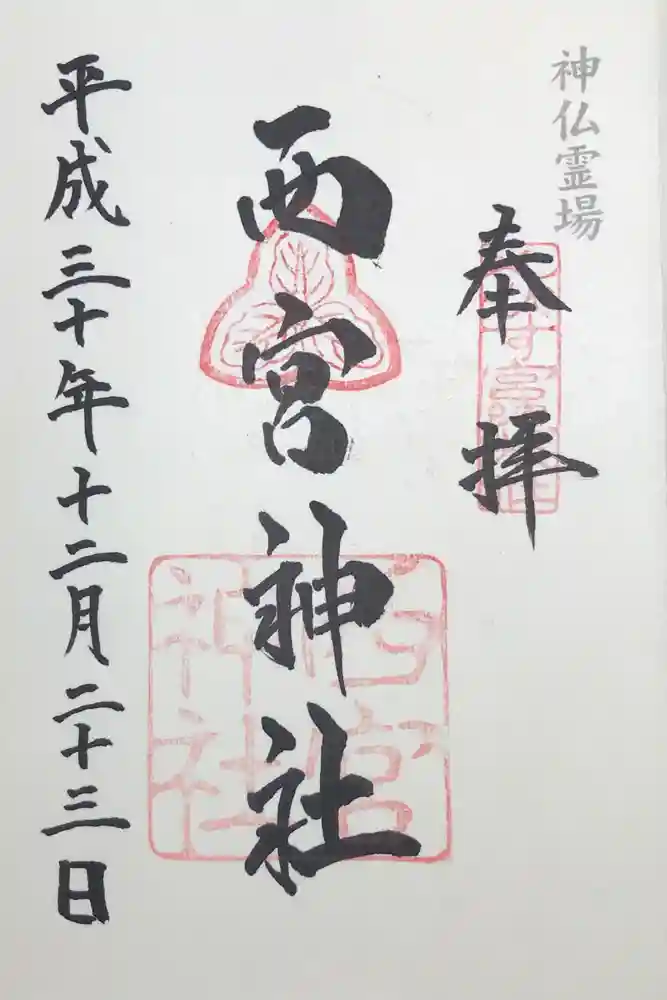 神仏霊場
奉拝
西宮神社
西宮
神社
平成三十年十二月二十三日